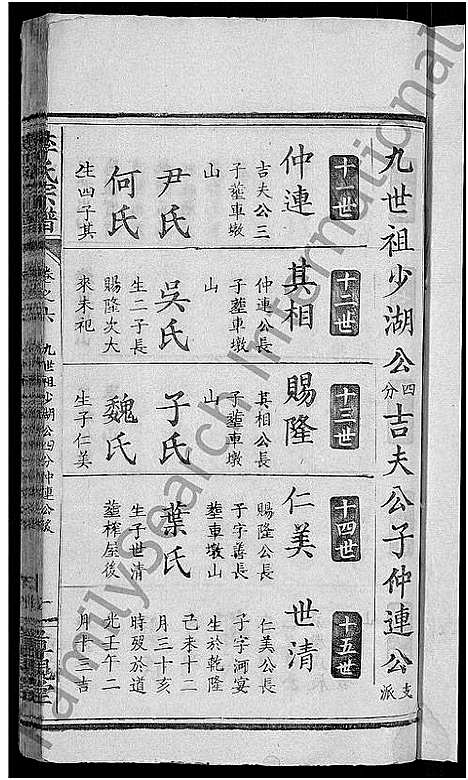 九世祖少湖公四分吉夫公子仲連公支派
十一世
仲連
吉夫公三
子塟車墩
山
尹氏
何氏
生四子其
十二世
其相
仲連公長
子塟車墩
山
吳氏
生二子長
賜隆次大
來未祀
十三世
賜隆
其相公長
子塟車墩
山
子氏
魏氏
生子仁美
十四世
仁美
賜隆公長
子字善長
塟車墩山
葉氏
生子世清
塟榨屋後
十五世
世清
仁美公長
子字河宴
生於乾隆
己未十二
月三十亥
時殁於道
光壬午二
月十三吉
李氏宗譜
卷之六
九世祖少湖公四分仲連公派
FamilySearch International